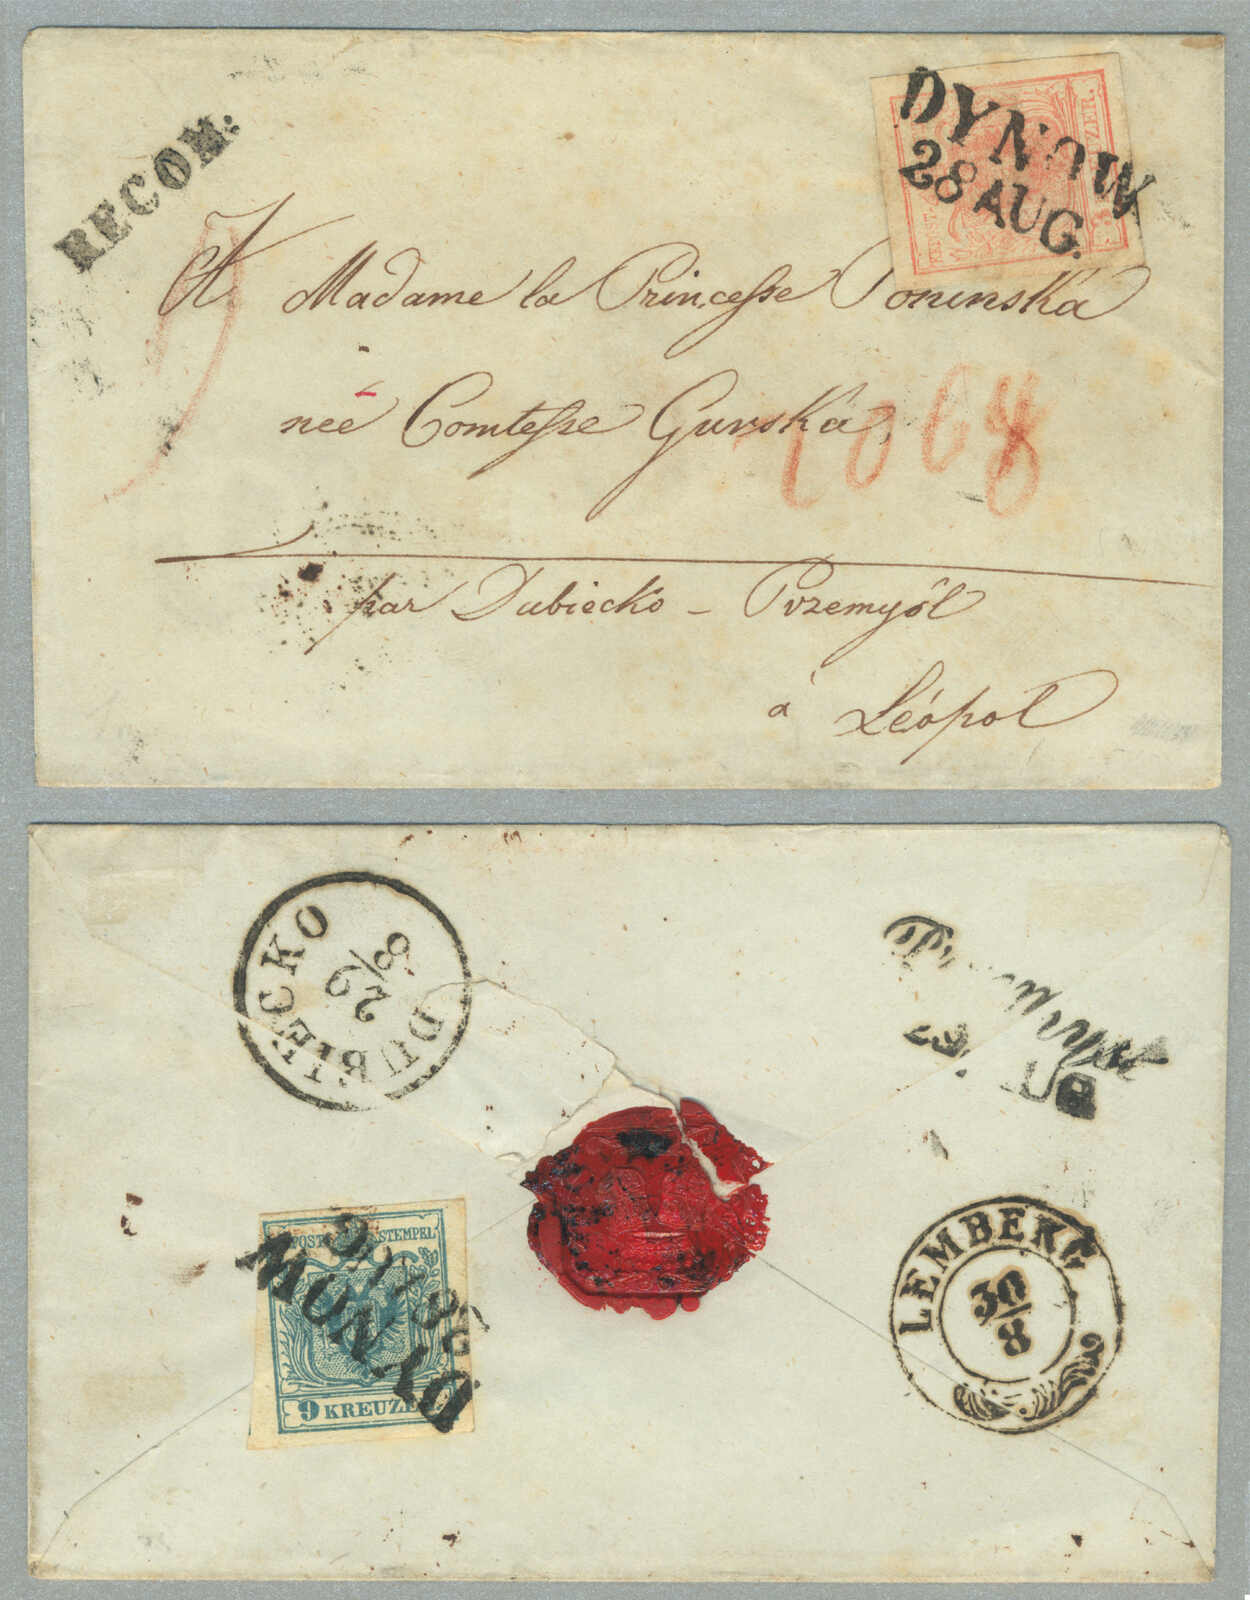 RECOM:
DYNOW
28 AUG.
KREUZER.
A Madame la Princesse Poninska
née Comtesse Gurska,
1068
par Dubiecko - Przemysl
à Léopol
DUBIECKO
29/8
Przemysl
29 AUG
POST STEMPEL
9 KREUZER
DYNOW
28 AUG
LEMBERG
30/8